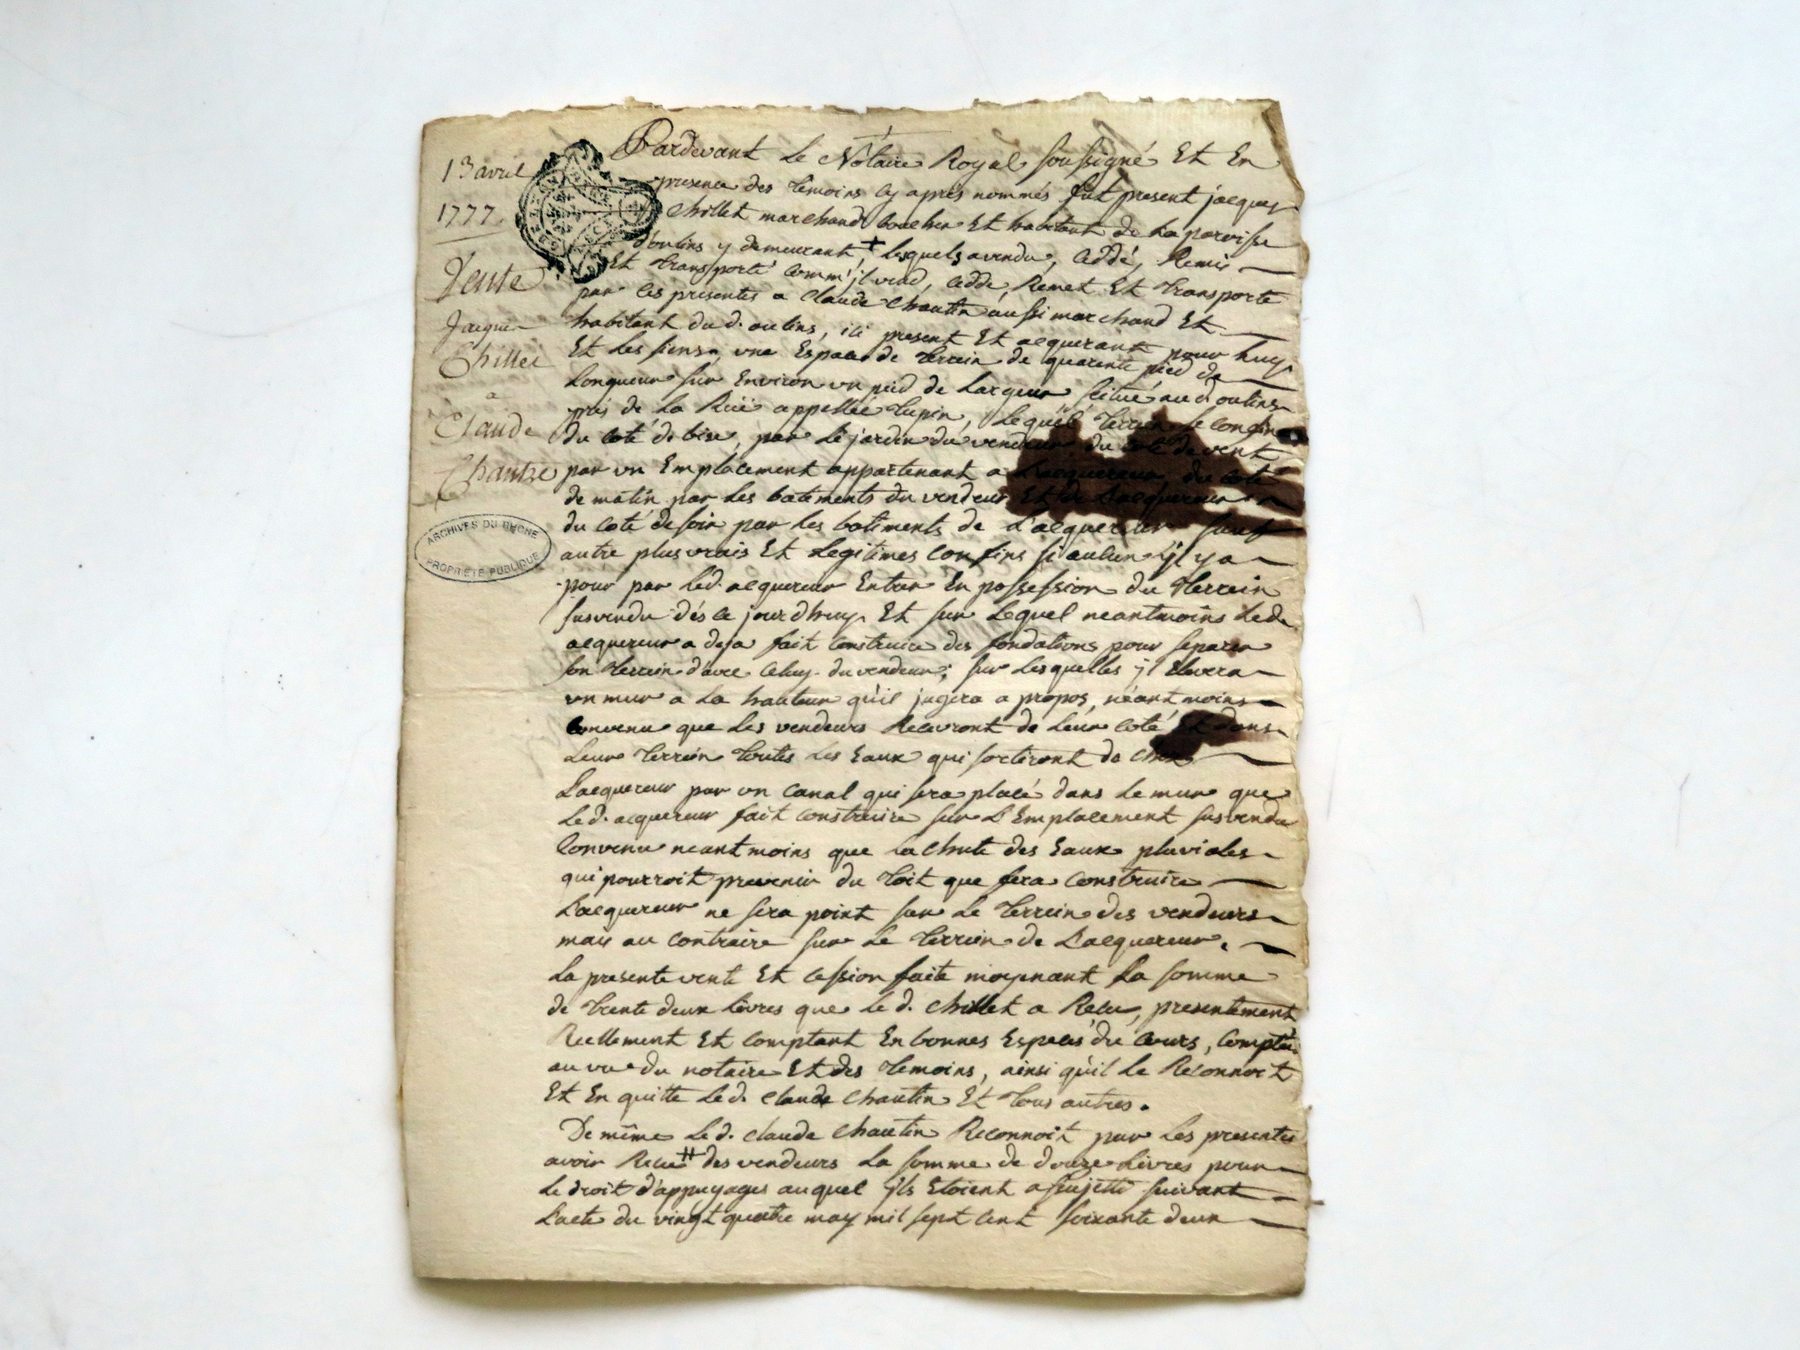 13 avril
1777.
Vente
Jacques
Chillet
a
Claude
Chautin
ARCHIVES DU RHONE
PROPRIETE PUBLIQUE
Pardevant Le Nótaire Royal soussigné Et En
presence des temoins cy aprés nommés fut present jacques
Chillet marchand boucher Et habitant de La paroisse
d'oulins y demeurant, + lesquels a vendu, Ceddé, Remis
Et transporté comm'jl vend, Cedde, Remet Et transporte
par les presentes a Claude Chautin aussi marchand Et
habitant du d. oulins, ici present Et acquerant pour Luy
Et Les siens, une Espace de terrein de quarente pied de
Longueur sur Environ un pied de Largeur scitué au d. oulins
prés de La Ruë appellée tupin, Lequel terrein se confine
du coté de bise, par Le jardin du vendeur, du coté de vent
par un Emplacement appartenant a L'acquereur du coté
de matin par Les batiments du vendeur Et de L'acquereur
du coté de soir par Les batiments de L'acquereur sauf
autre plus vrais Et Legitimes confins si aucun jl y a
pour par Led. acquereur Entrer En possession du terrein
susvendu dés ce jourd'huy Et sur Lequel neantmoins Led.
acquereur a deja fait construire des fondations pour separer
son terrein d'avec Celuy du vendeur; sur Lesquelles jl Elevera
un mur a La hauteur qu'il jugera a propos, néantmoins
Convenu que Les vendeurs Recevront de Leur coté Et dans
Leur terrein toutes Les Eaux qui sortiront de chez
L'acquereur par un Canal qui sera placé dans Le mur que
Led. acquereur fait construire sur L'Emplacement susvendu
Convenu neantmoins que La chute des Eaux pluviales
qui pourroit provenir du toit que fera Construire
L'acquereur ne sera point sur Le terrein des vendeurs
mais au Contraire sur Le terrein de L'acquereur.
La presente vente Et Cession faite moyenant La somme
de trente deux Livres que Le d. Chillet a Recu, presentement
Reellement Et comptant En bonnes Especes du Cours, Comptées
au vu du notaire Et des temoins, ainsi qu'il Le Reconnoit
Et En quitte Led. Claude Chautin Et tous autres.
De même Led. Claude Chautin Reconnoit par Les presentes
avoir Recu # des vendeurs La somme de douze Livres pour
Le droit d'appuyages auquel jls Etoient assujetti suivant
L'acte du vingt quatre may mil sept Cent soixante deux